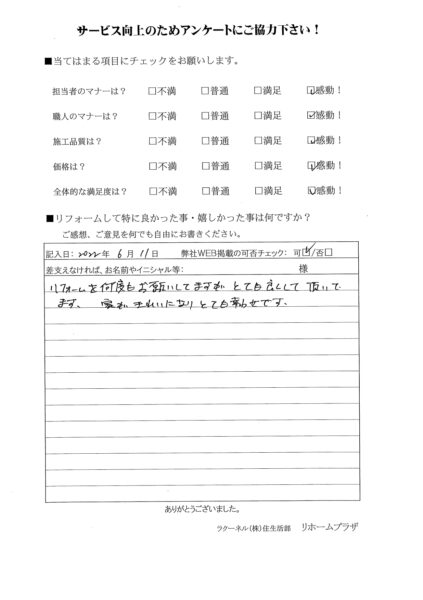 サービス向上のためアンケートにご協力下さい！
■当てはまる項目にチェックをお願いします。
担当者のマナーは？ □不満 □普通 □満足 ☑感動！
職人のマナーは？ □不満 □普通 □満足 ☑感動！
施工品質は？ □不満 □普通 □満足 ☑感動！
価格は？ □不満 □普通 □満足 ☑感動！
全体的な満足度は？ □不満 □普通 □満足 ☑感動！
■リフォームして特に良かった事・嬉しかった事は何ですか？
ご感想、ご意見を何でも自由にお書きください。
記入日：2022年 6月 11日 弊社WEB掲載の可否チェック： 可☑/否□
差支えなければ、お名前やイニシャル等： 様
リフォームを何度もお願いしてますが とても良くして 頂いて
ます。 家が きれいになり とても幸せです。
ありがとうございました。
ラクーネル（株）住生活部 リホームプラザ